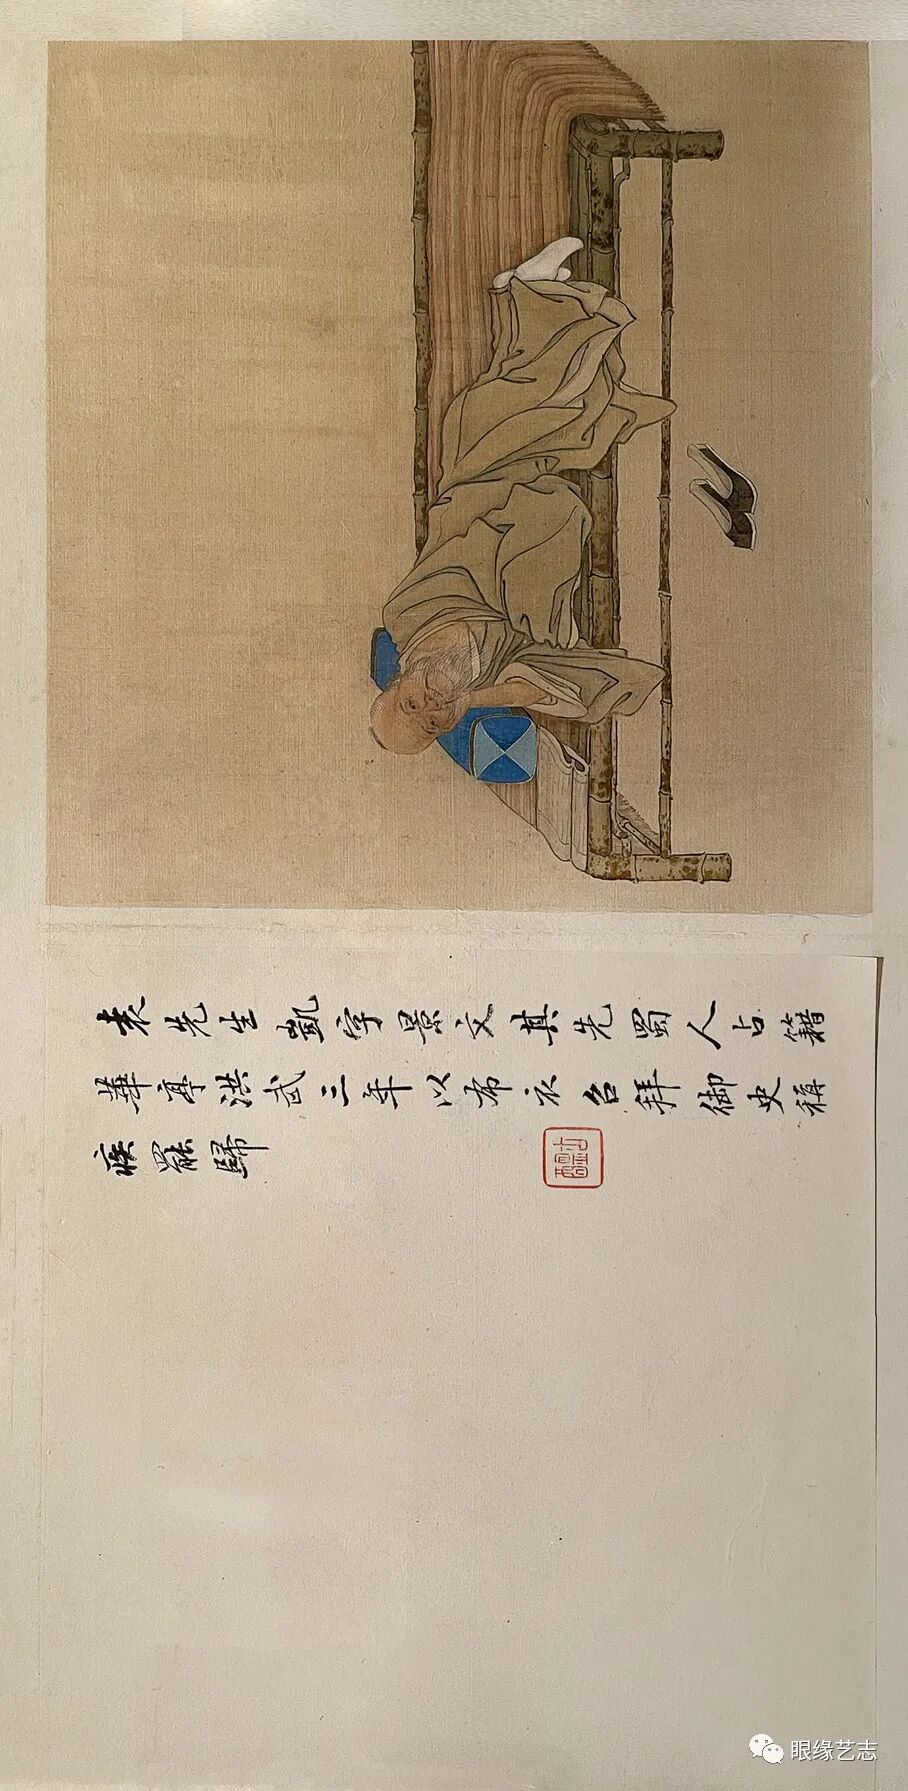 袁先生凱字景文其先蜀人占籍
華亭洪武三年以布衣召拜御史稱
疾罷歸
眼缘艺志